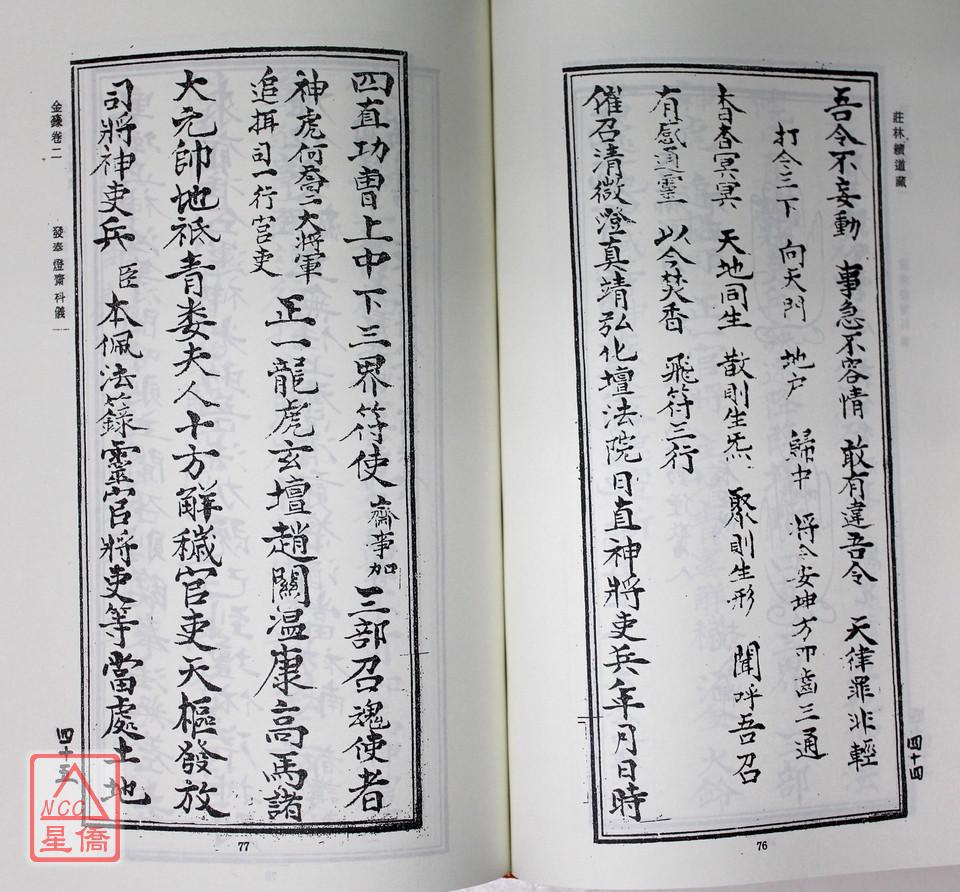 莊林續道藏
吾令不妄動 事急不容情 敢有違吾令 天律罪非輕
打令三下 向天門 地户 歸中 將令安坤方叩齒三通
杳杳冥冥 天地同生 散則生炁 聚則生形 聞呼吾召
有感通靈 以今焚香 飛符三行
催召清微澄真靖弘化壇法院日直神將吏兵年月日時
四十四
76
四直功曹上中下三界符使 齋事加 三部召魂使者
神虎何喬二大將軍
追搑司一行官吏 正一龍虎玄壇趙關温康高馬諸
大元帥地祇青娄夫人十方解穢官吏天樞發放
司將神吏兵 臣 本佩法籙靈官將吏等當處土地
金籙卷二
發奉燈齋科儀
四十五
77
NCC
星僑